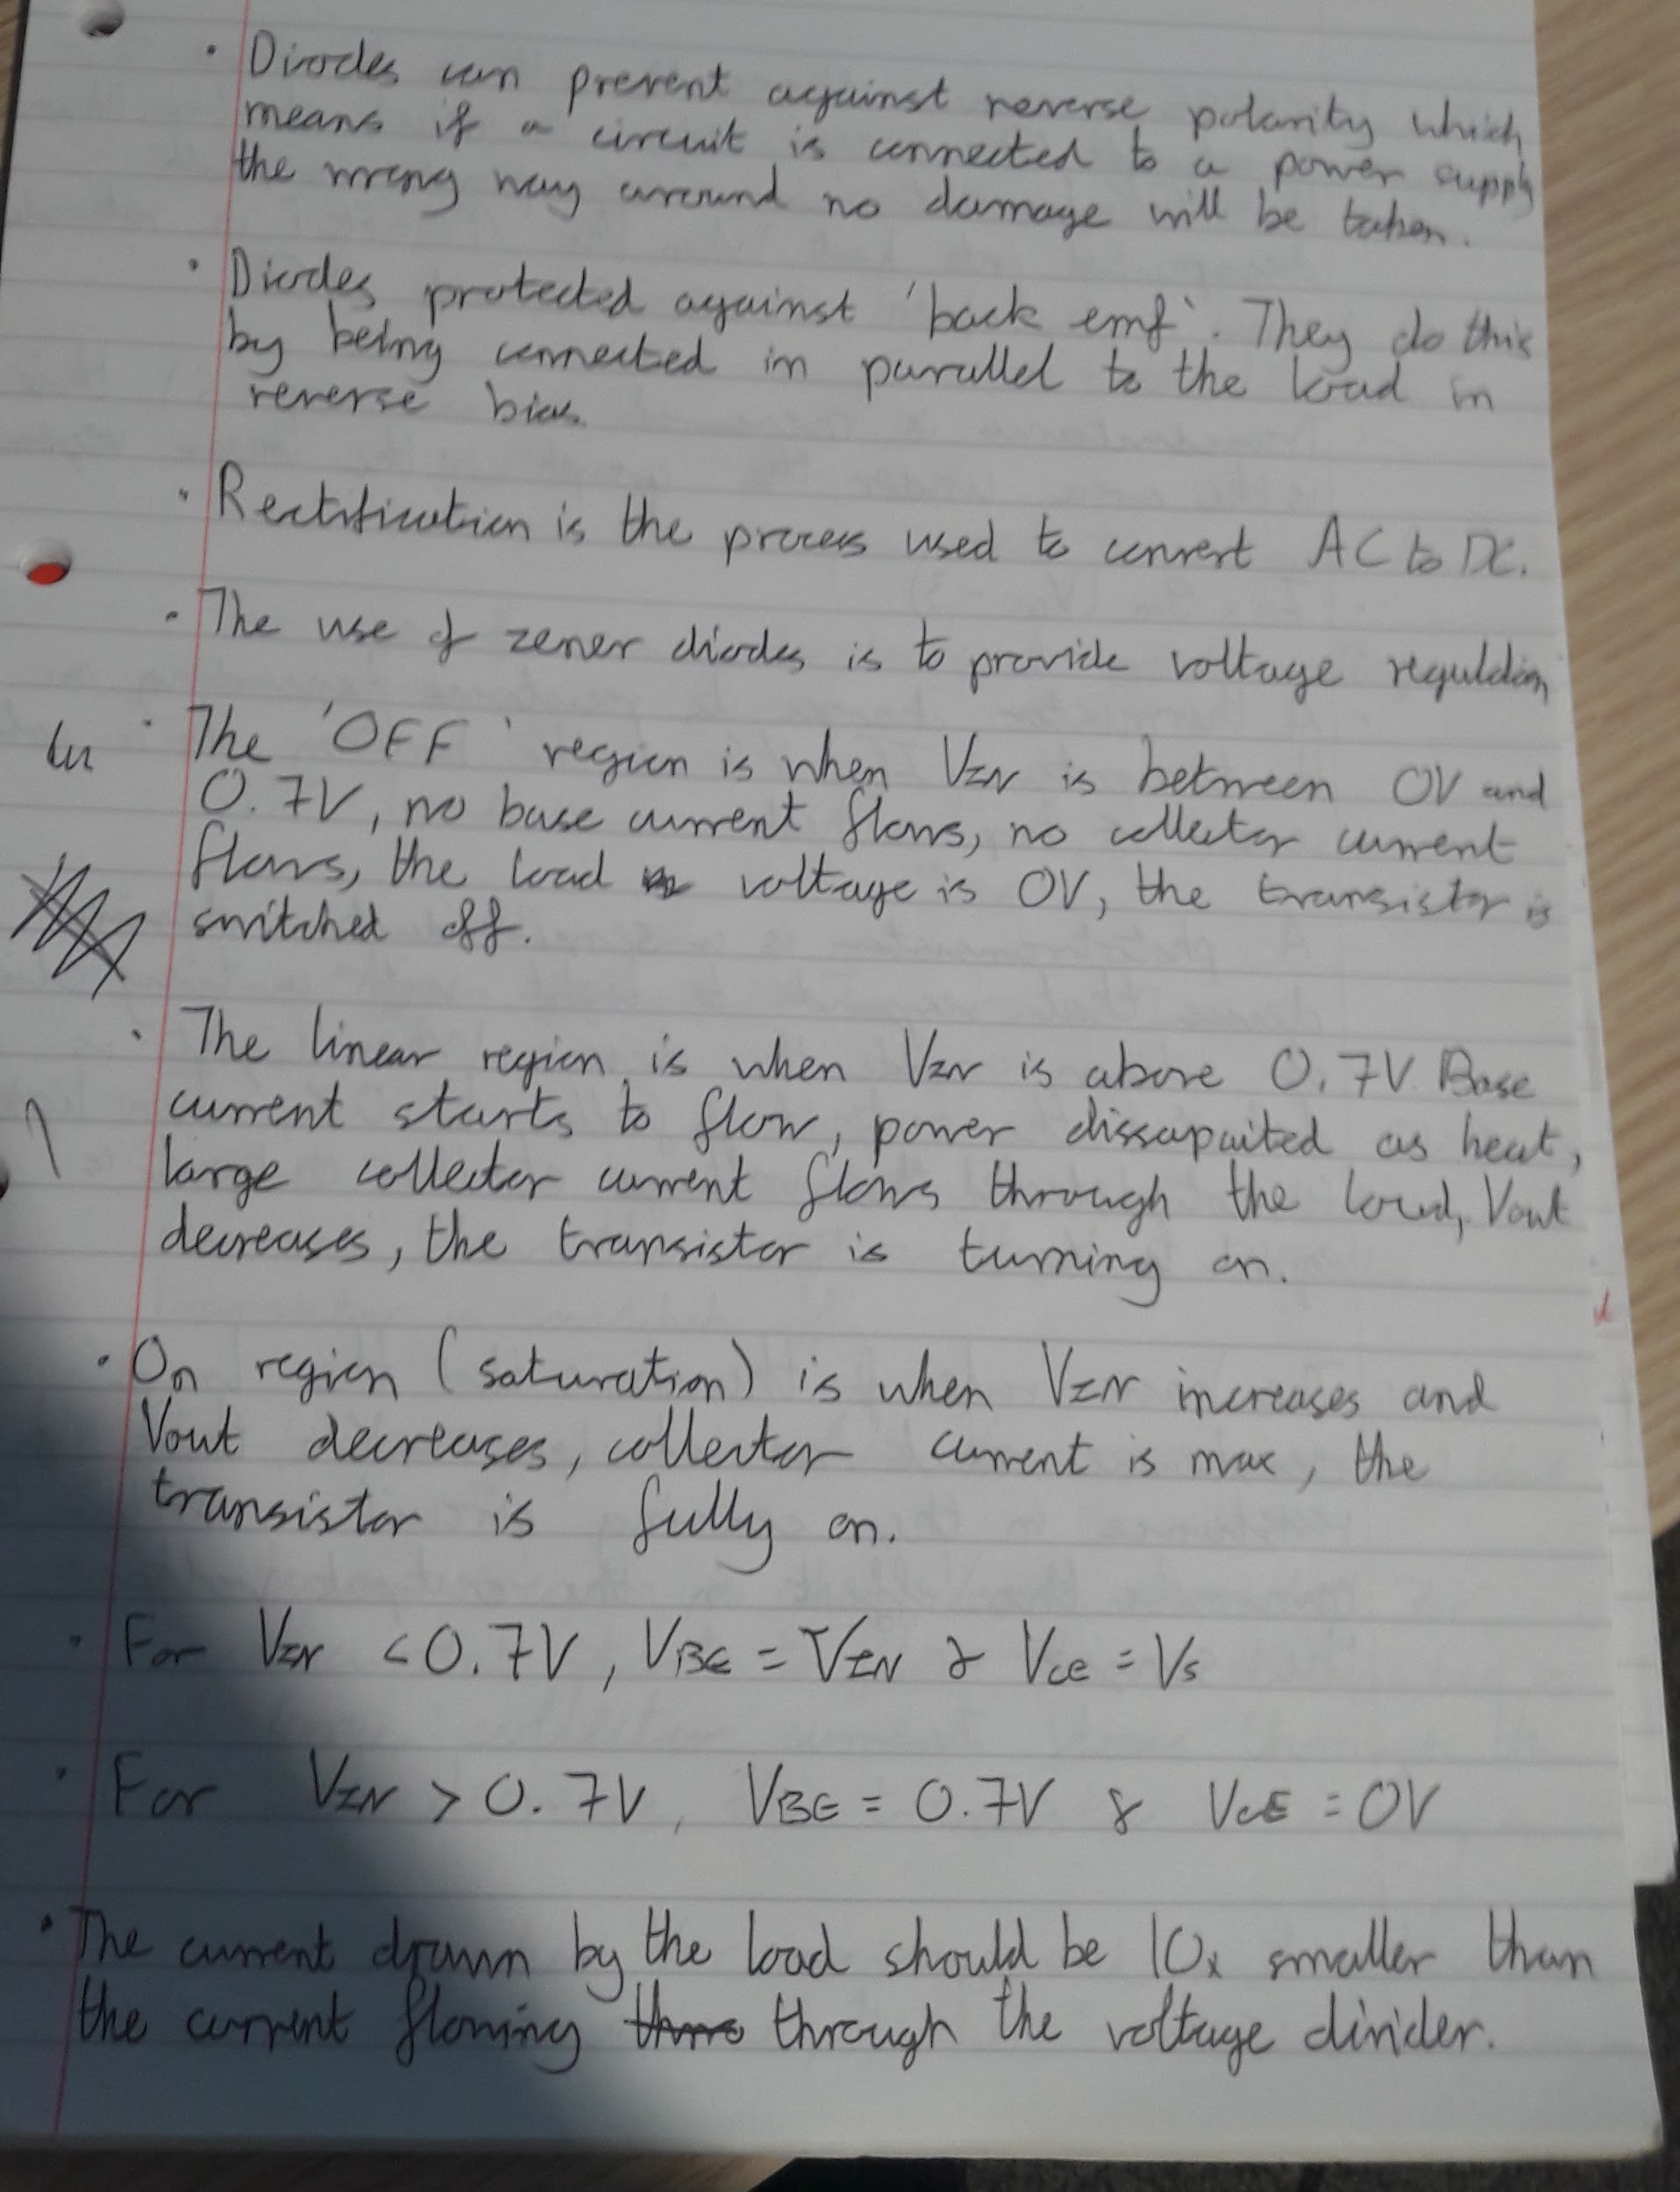 • Diodes can prevent against reverse polarity which
means if a circuit is connected to a power supply
the wrong way around no damage will be taken.
• Diodes protected against 'back emf'. They do this
by being connected in parallel to the load in
reverse bias.
• Rectification is the process used to convert AC to DC.
• The use of zener diodes is to provide voltage regulation
• The 'OFF' region is when VIN is between 0V and
0.7V, no base current flows, no collector current
flows, the load voltage is 0V, the transistor is
switched off.
• The linear region is when VIN is above 0.7V. Base
current starts to flow, power dissapaited as heat,
large collector current flows through the load, Vout
decreases, the transistor is turning on.
• On region (saturation) is when VIN increases and
Vout decreases, collector current is max, the
transistor is fully on.
• For VIN < 0.7V, VBE = VIN & VCE = Vs
• For VIN > 0.7V, VBE = 0.7V & VCE = 0V
• The current drawn by the load should be 10x smaller than
the current flowing through the voltage divider.